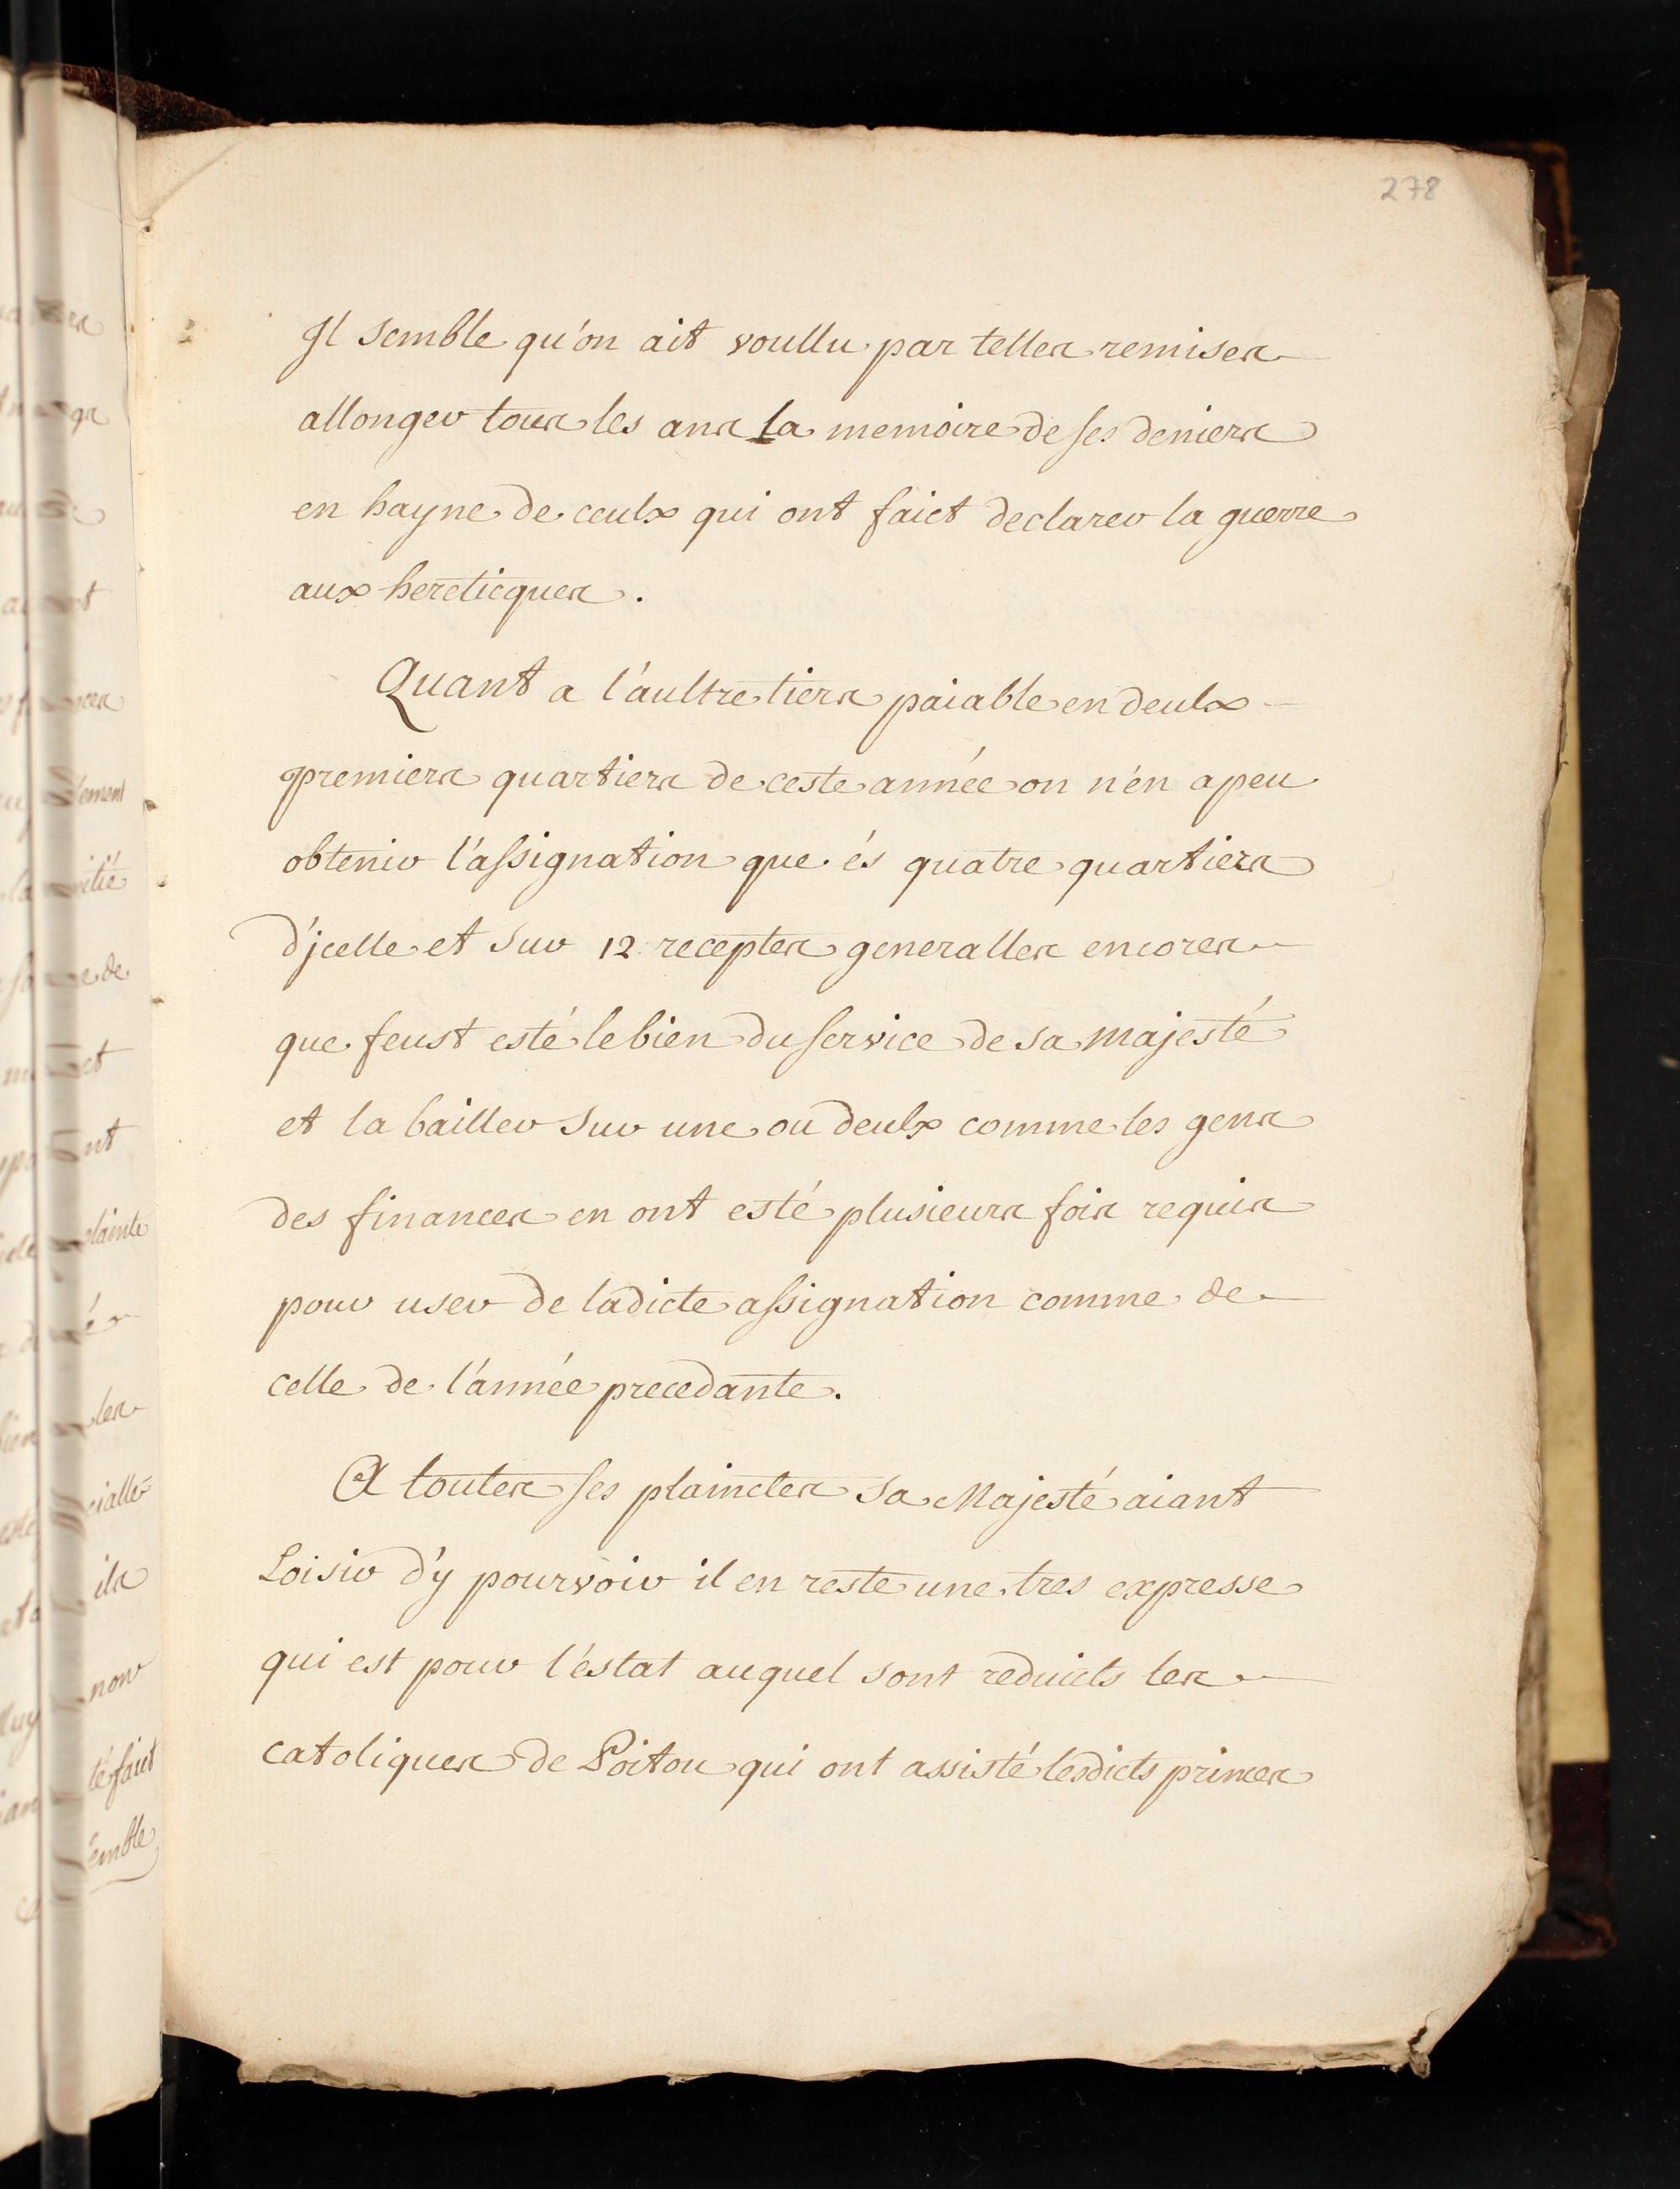 278
Il semble qu'on ait voullu par telles remises
allonger tous les ans la memoire de ses deniers
en hayne de ceulx qui ont faict declarer la guerre
aux hereticques.
Quant a l'aultre tiers paiable en deulx
premiers quartiers de ceste année on n'en a peu
obtenir l'assignation que és quatre quartiers
d'jcelle et sur 12 receptes generalles encores
que feust esté le bien du service de sa majesté
et la bailler sur une ou deulx comme les gens
des finances en ont esté plusieurs fois requis
pour user de ladicte assignation comme de
celle de l'année precedante.
A toutes ses plainctes sa Majesté aiant
Loisir d'y pourvoir il en reste une tres expresse
qui est pour l'éstat auquel sont reduicts les
catoliques de Poitou qui ont assisté lesdicts princes